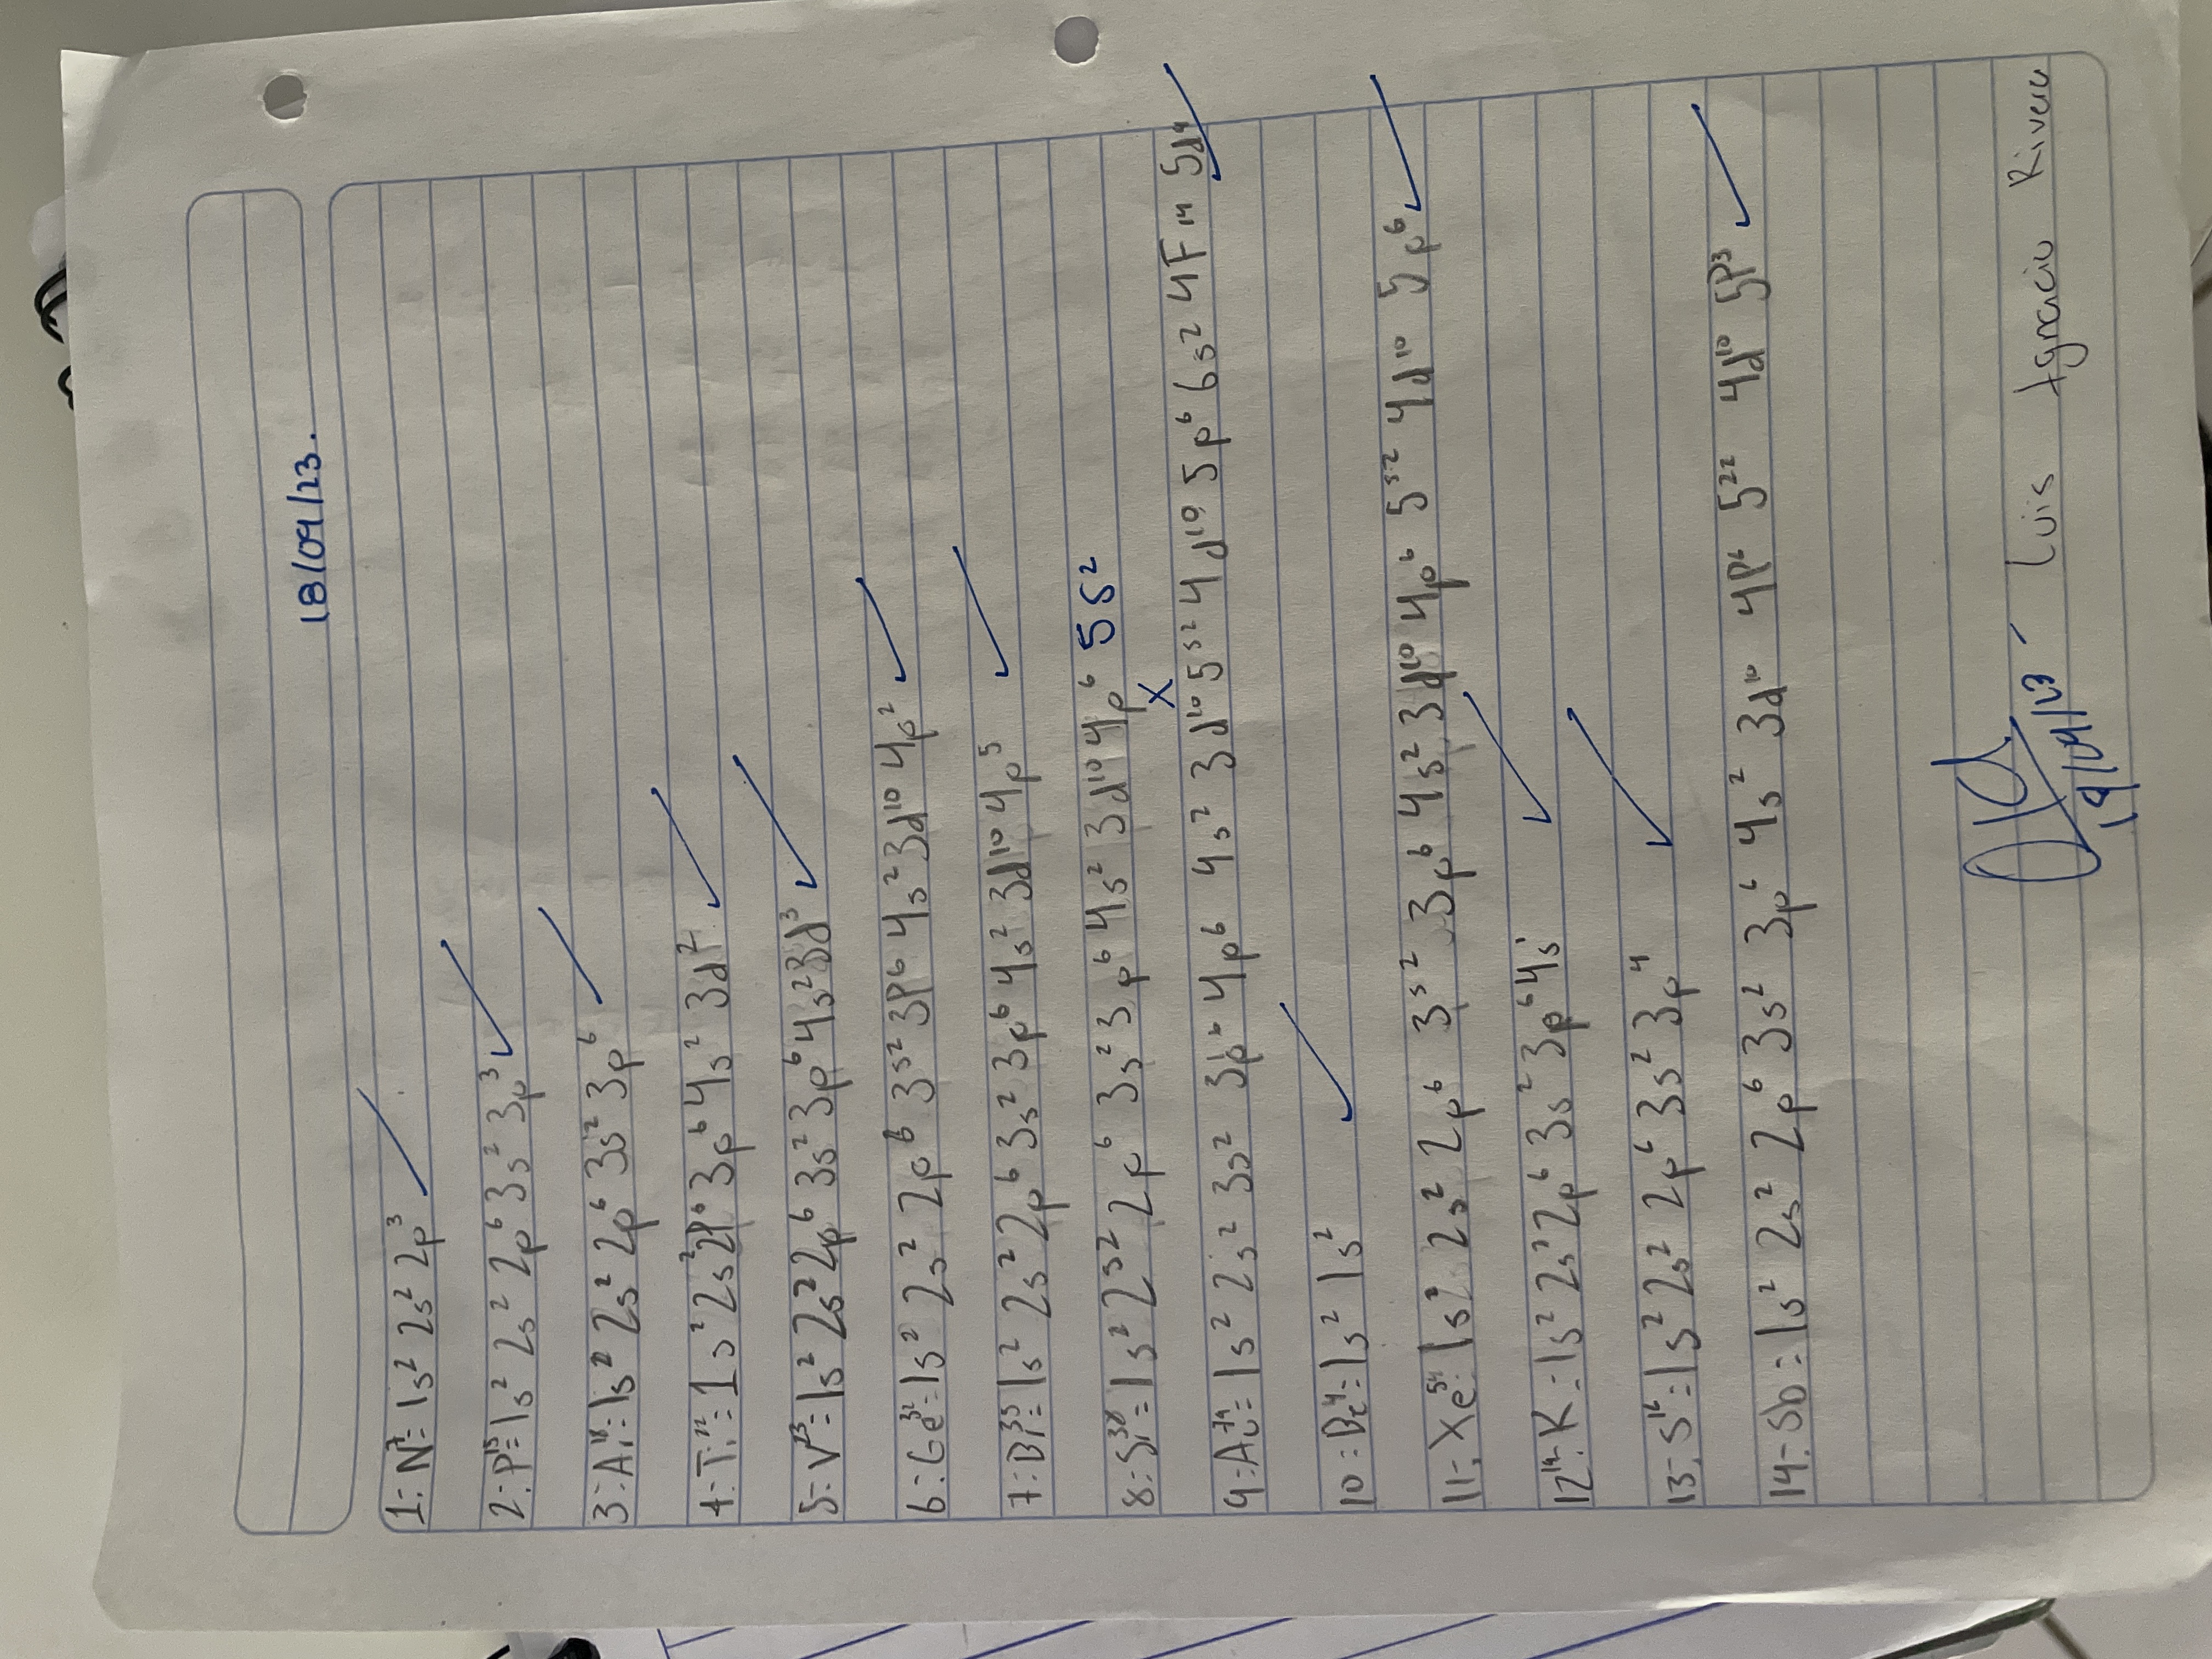 18/09/23.
1:- N⁷= 1s² 2s² 2p³
2:- P¹⁵= 1s² 2s² 2p⁶ 3s² 3p³
3:- Ar¹⁸= 1s² 2s² 2p⁶ 3s² 3p⁶
4:- Ti²²= 1s² 2s² 2p⁶ 3p⁶ 4s² 3d²
5:- V²³= 1s² 2s² 2p⁶ 3s² 3p⁶ 4s² 3d³
6:- Ge³²= 1s² 2s² 2p⁶ 3s² 3p⁶ 4s² 3d¹⁰ 4p²
7:- Br³⁵= 1s² 2s² 2p⁶ 3s² 3p⁶ 4s² 3d¹⁰ 4p⁵
8:- Sr³⁸= 1s² 2s² 2p⁶ 3s² 3p⁶ 4s² 3d¹⁰ 4p⁶ 5s²
x
9:- Au⁷⁹= 1s² 2s² 3s² 3p⁶ 4p⁶ 4s² 3d¹⁰ 5s² 4d¹⁰ 5p⁶ 6s² 4F¹⁴ 5d⁹
10:- Be⁴= 1s² 1s²
11:- Xe⁵⁴: 1s² 2s² 2p⁶ 3s² 3p⁶ 4s² 3d¹⁰ 4p⁶ 5s² 4d¹⁰ 5p⁶
12¹⁹:- K:- 1s² 2s² 2p⁶ 3s² 3p⁶ 4s¹
13:- S¹⁶: 1s² 2s² 2p⁶ 3s² 3p⁴
14:- Sb:- 1s² 2s² 2p⁶ 3s² 3p⁶ 4s² 3d¹⁰ 4p⁶ 5²² 4d¹⁰ 5p³
Luis Ignacio Rivera